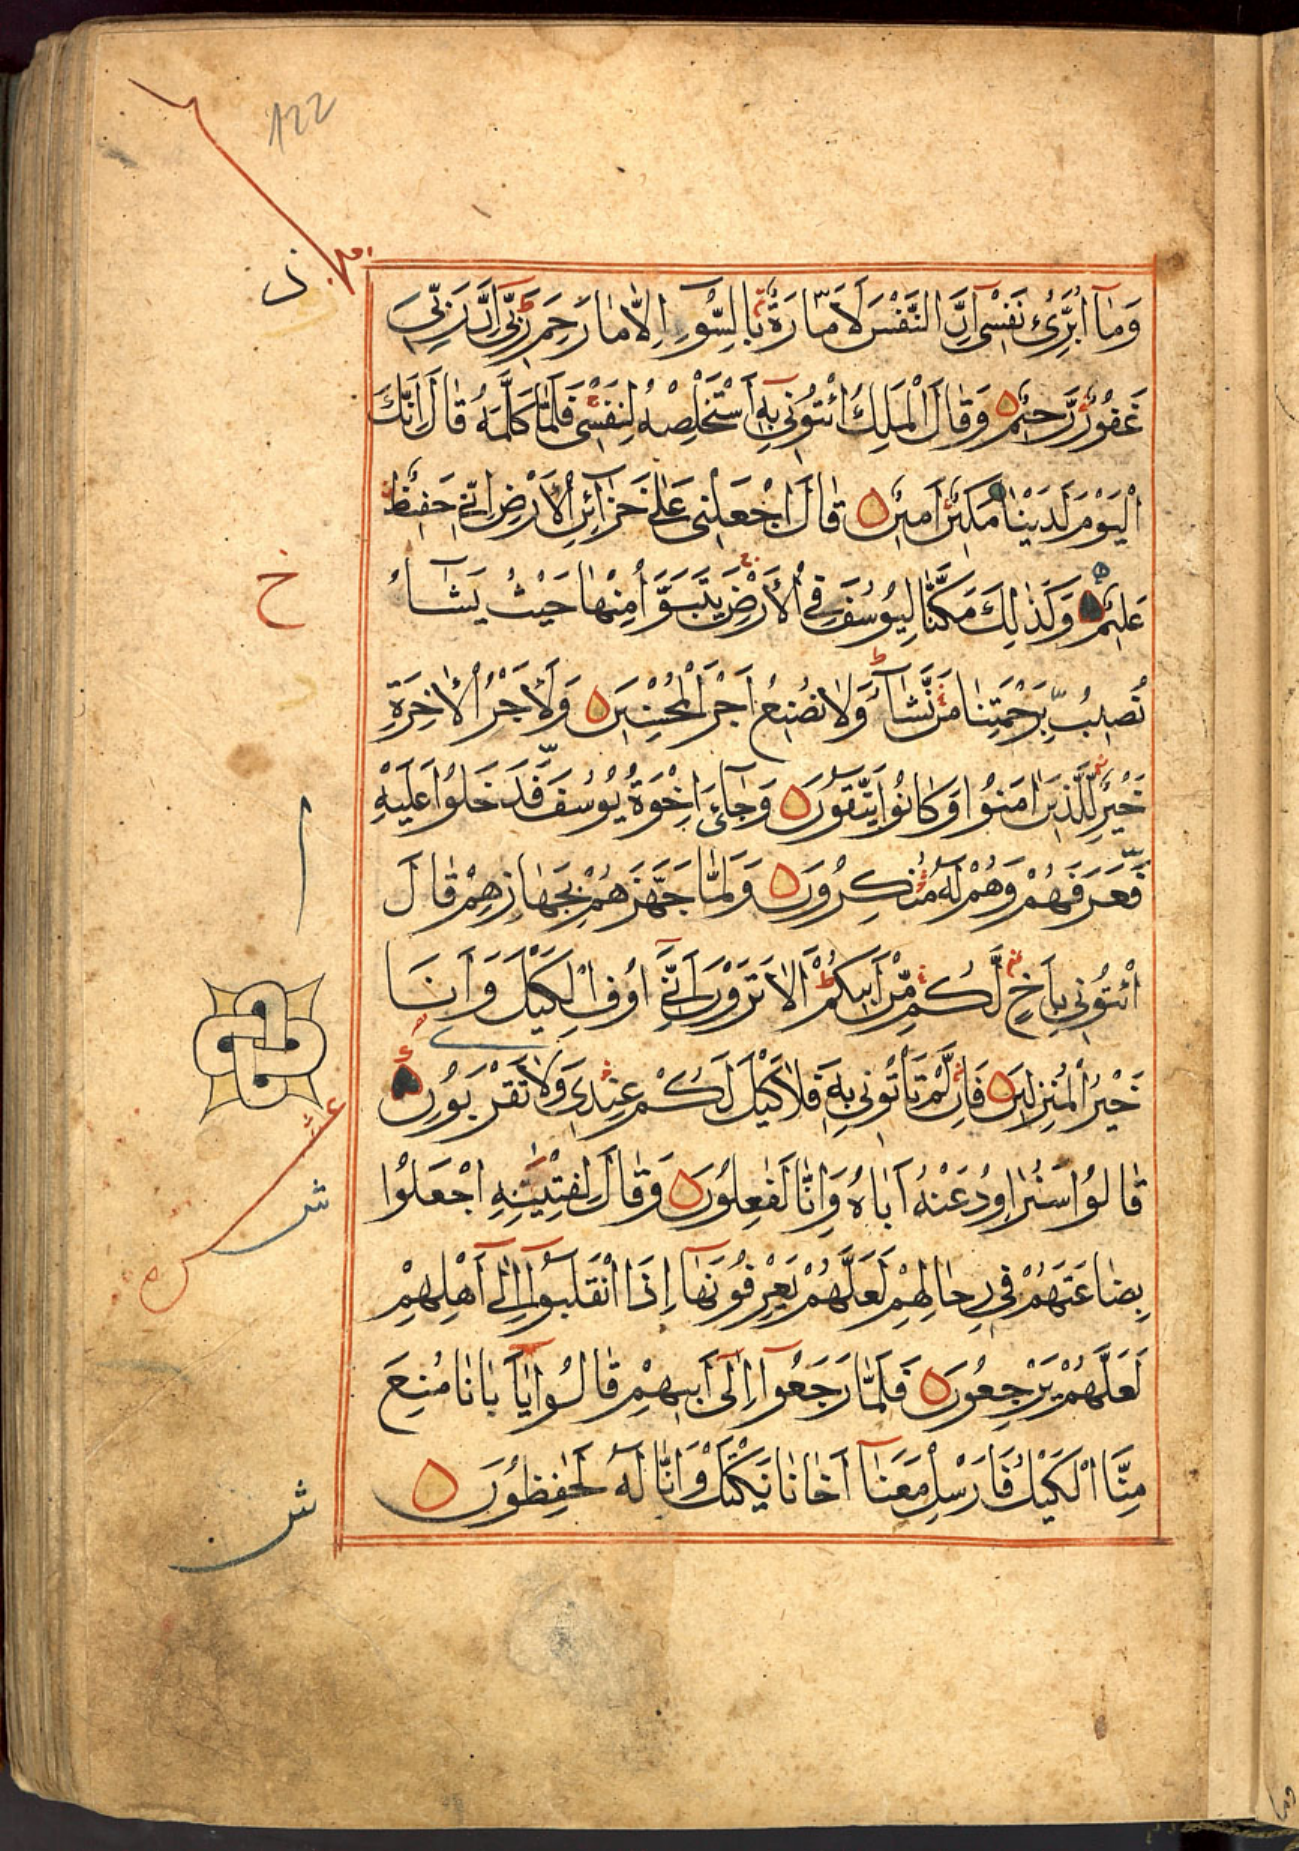 122
وَمَآ اُبَرِّئُ نَفْسٖى اِنَّ النَّفْسَ لَاَمَّارَةٌ بِالسُّوٓءِ اِلَّا مَا رَحِمَ رَبّٖى اِنَّ رَبّٖى
ز
غَفُورٌ رَحٖيمٌ وَقَالَ الْمَلِكُ ائْتُونٖى بِهٖٓ اَسْتَخْلِصْهُ لِنَفْسٖى فَلَمَّا كَلَّمَهُ قَالَ اِنَّكَ
الْيَوْمَ لَدَيْنَا مَكٖينٌ اَمٖينٌ قَالَ اجْعَلْنٖى عَلٰى خَزَآئِنِ الْاَرْضِ اِنّٖى حَفٖيظٌ
عَلٖيمٌ وَكَذٰلِكَ مَكَّنَّا لِيُوسُفَ فِى الْاَرْضِ يَتَبَوَّاُ مِنْهَا حَيْثُ يَشَآءُ
ح
نُصٖيبُ بِرَحْمَتِنَا مَنْ نَشَآءُ وَلَا نُضٖيعُ اَجْرَ الْمُحْسِنٖينَ وَلَاَجْرُ الْاٰخِرَةِ
خَيْرٌ لِلَّذٖينَ اٰمَنُوا وَكَانُوا يَتَّقُونَ وَجَآءَ اِخْوَةُ يُوسُفَ فَدَخَلُوا عَلَيْهِ
فَعَرَفَهُمْ وَهُمْ لَهُ مُنْكِرُونَ وَلَمَّا جَهَّزَهُمْ بِجَهَازِهِمْ قَالَ
ائْتُونٖى بِاَخٍ لَكُمْ مِنْ اَبٖيكُمْ اَلَا تَرَوْنَ اَنّٖٓى اُوفِى الْكَيْلَ وَاَنَا
خَيْرُ الْمُنْزِلٖينَ فَاِنْ لَمْ تَاْتُونٖى بِهٖ فَلَا كَيْلَ لَكُمْ عِنْدٖى وَلَا تَقْرَبُونِ
قَالُوا سَنُرَاوِدُ عَنْهُ اَبَاهُ وَاِنَّا لَفٰعِلُونَ وَقَالَ لِفِتْيٰنِهِ اجْعَلُوا
ش
بِضَاعَتَهُمْ فٖى رِحَالِهِمْ لَعَلَّهُمْ يَعْرِفُونَهَآ اِذَا انْقَلَبُوٓا اِلٰٓى اَهْلِهِمْ
لَعَلَّهُمْ يَرْجِعُونَ فَلَمَّا رَجَعُوٓا اِلٰٓى اَبٖيهِمْ قَالُوا يَآ اَبَانَا مُنِعَ
مِنَّا الْكَيْلُ فَاَرْسِلْ مَعَنَآ اَخَانَا نَكْتَلْ وَاِنَّا لَهُ لَحٰفِظُونَ
ش